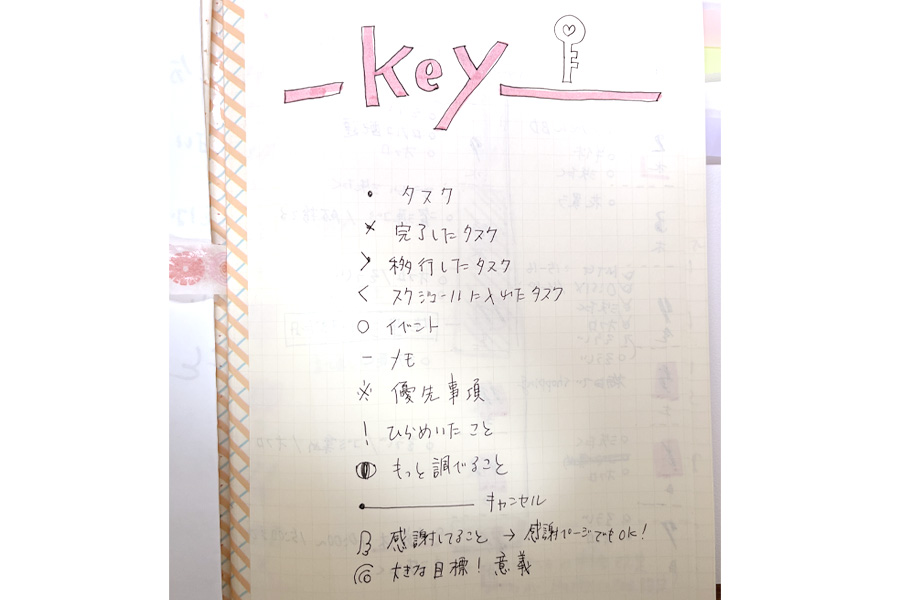 key
• タスク
× 完了したタスク
> 移行したタスク
< スケジュールに入れたタスク
○ イベント
− メモ
※ 優先事項
! ひらめいたこと
もっと調べること
•―――― キャンセル
感謝してること → 感謝ページでもOK!
大きな目標! 意義